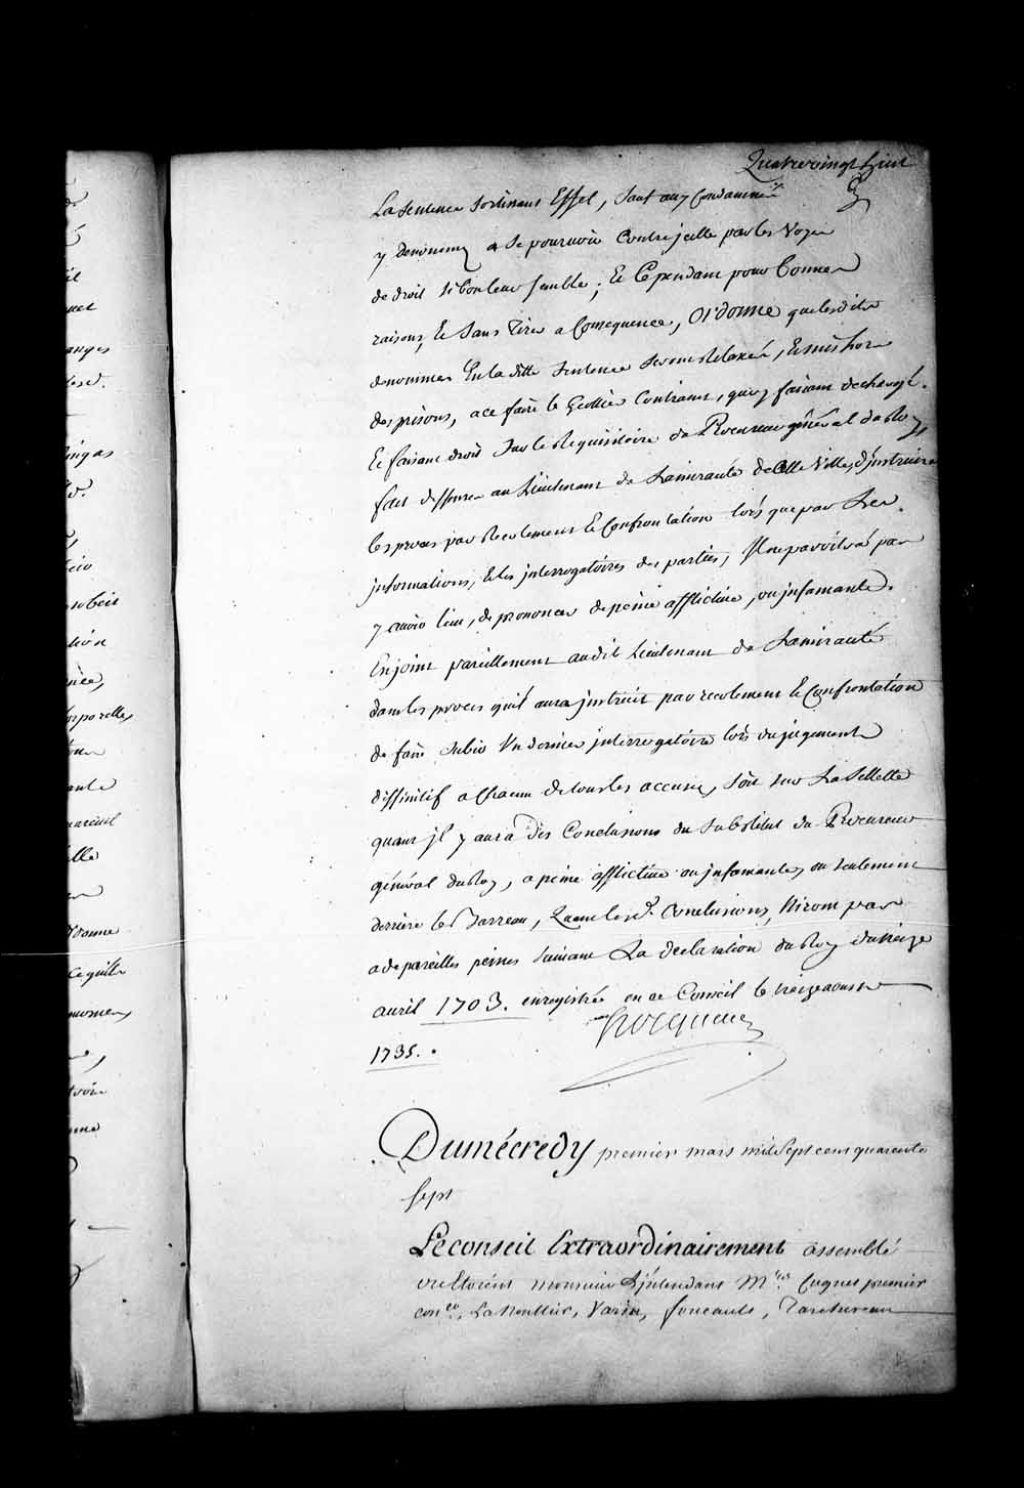 Quatrevingt huit
La Sentence Sortissant Effet, Sauf aux Condamnés
y denommez a Se pourvoir Contre jcelle par les Voyes
de droit Si bon leur Semble; Et Cependant pour bonnes
raisons, Et Sans tirer a Consequence, Ordonne que lesdits
denommes En la ditte Sentence Seront relaxés, Et mis hors
des prisons, a ce faire le Geollier Contraint, quoy faisant dechargé.
Et faisant droit Sur le Requisitoire du Procureur général du Roy
fait deffenses au Lieutenant de Lamirauté de Cette Ville, d'jnstruire
les procès par Recolement Et Confrontation lors que par Les
jnformations, Et les jnterrogatoires des parties, Il ne paroitra pas
y avoir lieu, de prononcer de peine afflictive, ou jnfamante.
Enjoint pareillement audit Lieutenant de Lamirauté
dans les procès quil aura jnstruit par recolement Et Confrontation
de faire Subir Un dernier jnterrogatoire lors du jugement
diffinitif a Chacun de tous les accusés, Soit sur La Sellette
quant jl y aura des Conclusions du Substitut du Procureur
général du Roy, a peine afflictive ou jnfamante, ou seulement
derriere le Barreau, Quand les d. Conclusions, N'iront pas
a de pareilles peines Suivant La declaration du Roy du treize
avril 1703. enregistrée en ce Conseil le treize aoust
1735..
hocquart
Dumécredy premier mars mil sept cent quarente
sept
Le conseil Extraordinairement assemblé
ou Etoient monsieur L'jntendant Mrs Cugnet premier
coner, Lanoullier, Varin, foucault, Taschereau